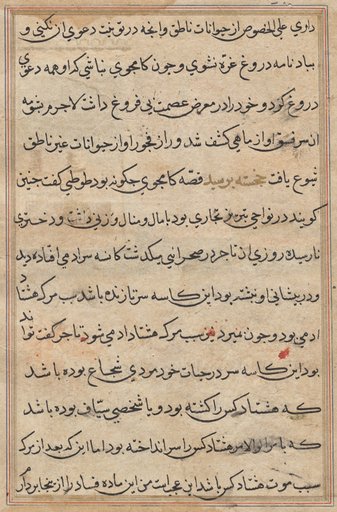 داری علی الخصوص از جوانات ناطق و آنچه در تو نیست دعوی آن نکنی و
بباد نامه دروغ غره نشوی و چون کامجوی نباشی که او همه دعوی
دروغ کرد و خود را در معرض عصمت بی فروغ داشت لاجرم
از سر فسق او ماهی کشف شد و راز فجور او از حیوانات غیر ناطق
شیوع یافت خجسته پرسید قصه کامجوی چگونه بود طوطی گفت چنین
کویند در نواحی تاجری بخاری بود با مال و منال وزنی داشت و دختری
نارسیده روزی آن تاجر در صحرا می گذشت کاسه سر آدمی افتاده دید
و در پیشانی او نبشته بود این کاسه سر تا زنده باشد سبب مرگ هشتاد
آدمی بود و چون بمیرد نیز سبب مرگ هشتاد آدمی شود تاجر گفت تواند
بود این کاسه سر در حیات خود مردی شجاع بوده باشد
که هشتاد کس را کشته بود و یا شخصی سیاف بوده باشد
که هشتاد کس را سر انداخته بود اما اینکه بعد از مرگ
سبب موت هشتاد کس باشد این عجایبست من این ماده فساد را از اینجا بردارم